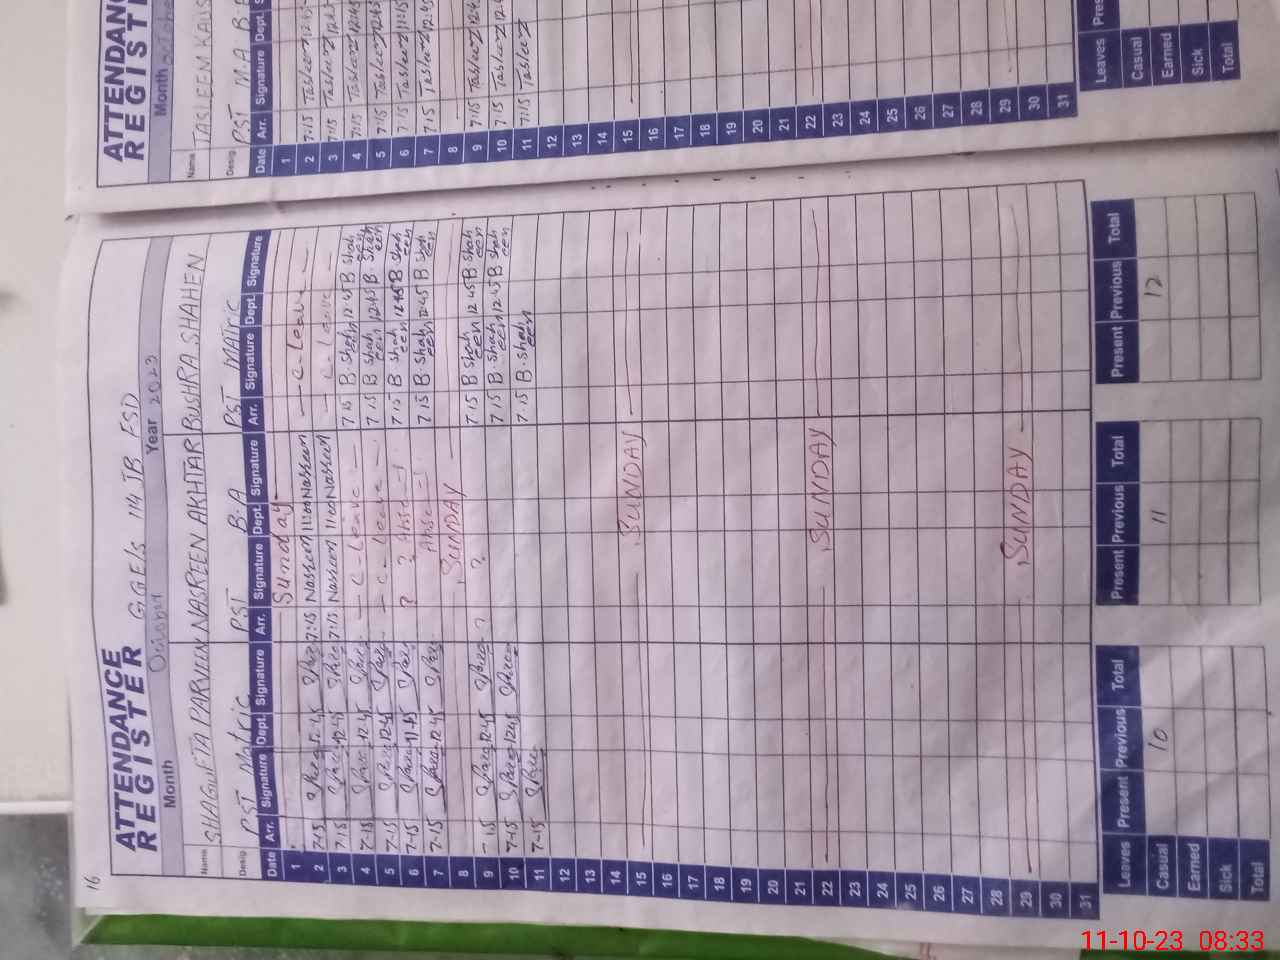 16
ATTENDANCE
REGISTER
GGELS 114 JB FSD
Month October Year 2023
Name SHAGUFTA PARVEEN NASREEN AKHTAR BUSHRA SHAHEN
Desig. PST Matric PST B.A PST MATRIC
Date Arr. Signature Dept. Signature Arr. Signature Dept. Signature Arr. Signature Dept. Signature
1 Sunday
2 7-15 12-45 7:15 Nasreen 11:00 Nasreen — C. Leave —
3 7-15 12-45 7:15 Nasreen 11:00 Nasreen — C. Leave —
4 7-15 12-45 — C - Leave — 7 15 B. Shaheen 12 45 B. Shaheen
5 7-15 12-45 — C - Leave — 7 15 B. Shaheen 12 45 B. Shaheen
6 7-15 11-45 ? ? 7 15 B. Shaheen 12 45 B. Shaheen
7 7-15 12-45 7 15 B. Shaheen 12 45 B. Shaheen
8 SUNDAY
9 7-15 12-45 ? ? 7 15 B. Shaheen 12 45 B. Shaheen
10 7-15 12-45 7 15 B. Shaheen 12 45 B. Shaheen
11 7-15 7-15 B. Shaheen
12
13
14
15 SUNDAY
16
17
18
19
20
21
22 SUNDAY
23
24
25
26
27
28
29 SUNDAY
30
31
Leaves Present Previous Total Present Previous Total Present Previous Total
Casual 10 11 12
Earned
Sick
Total
ATTENDANCE
REGISTER
Month October
Name TASLEEM KAUS
Desig. PST M.A
Date Arr. Signature Dept.
1
2 7:15 12:45
3 7:15 12:45
4 7:15 12:45
5 7:15 12:45
6 7:15 11:15
7 7:15 12:45
8
9 7:15
10 7:15
11 7:15
12
13
14
15
16
17
18
19
20
21
22
23
24
25
26
27
28
29
30
31
Leaves
Casual
Earned
Sick
Total
11-10-23 08:33